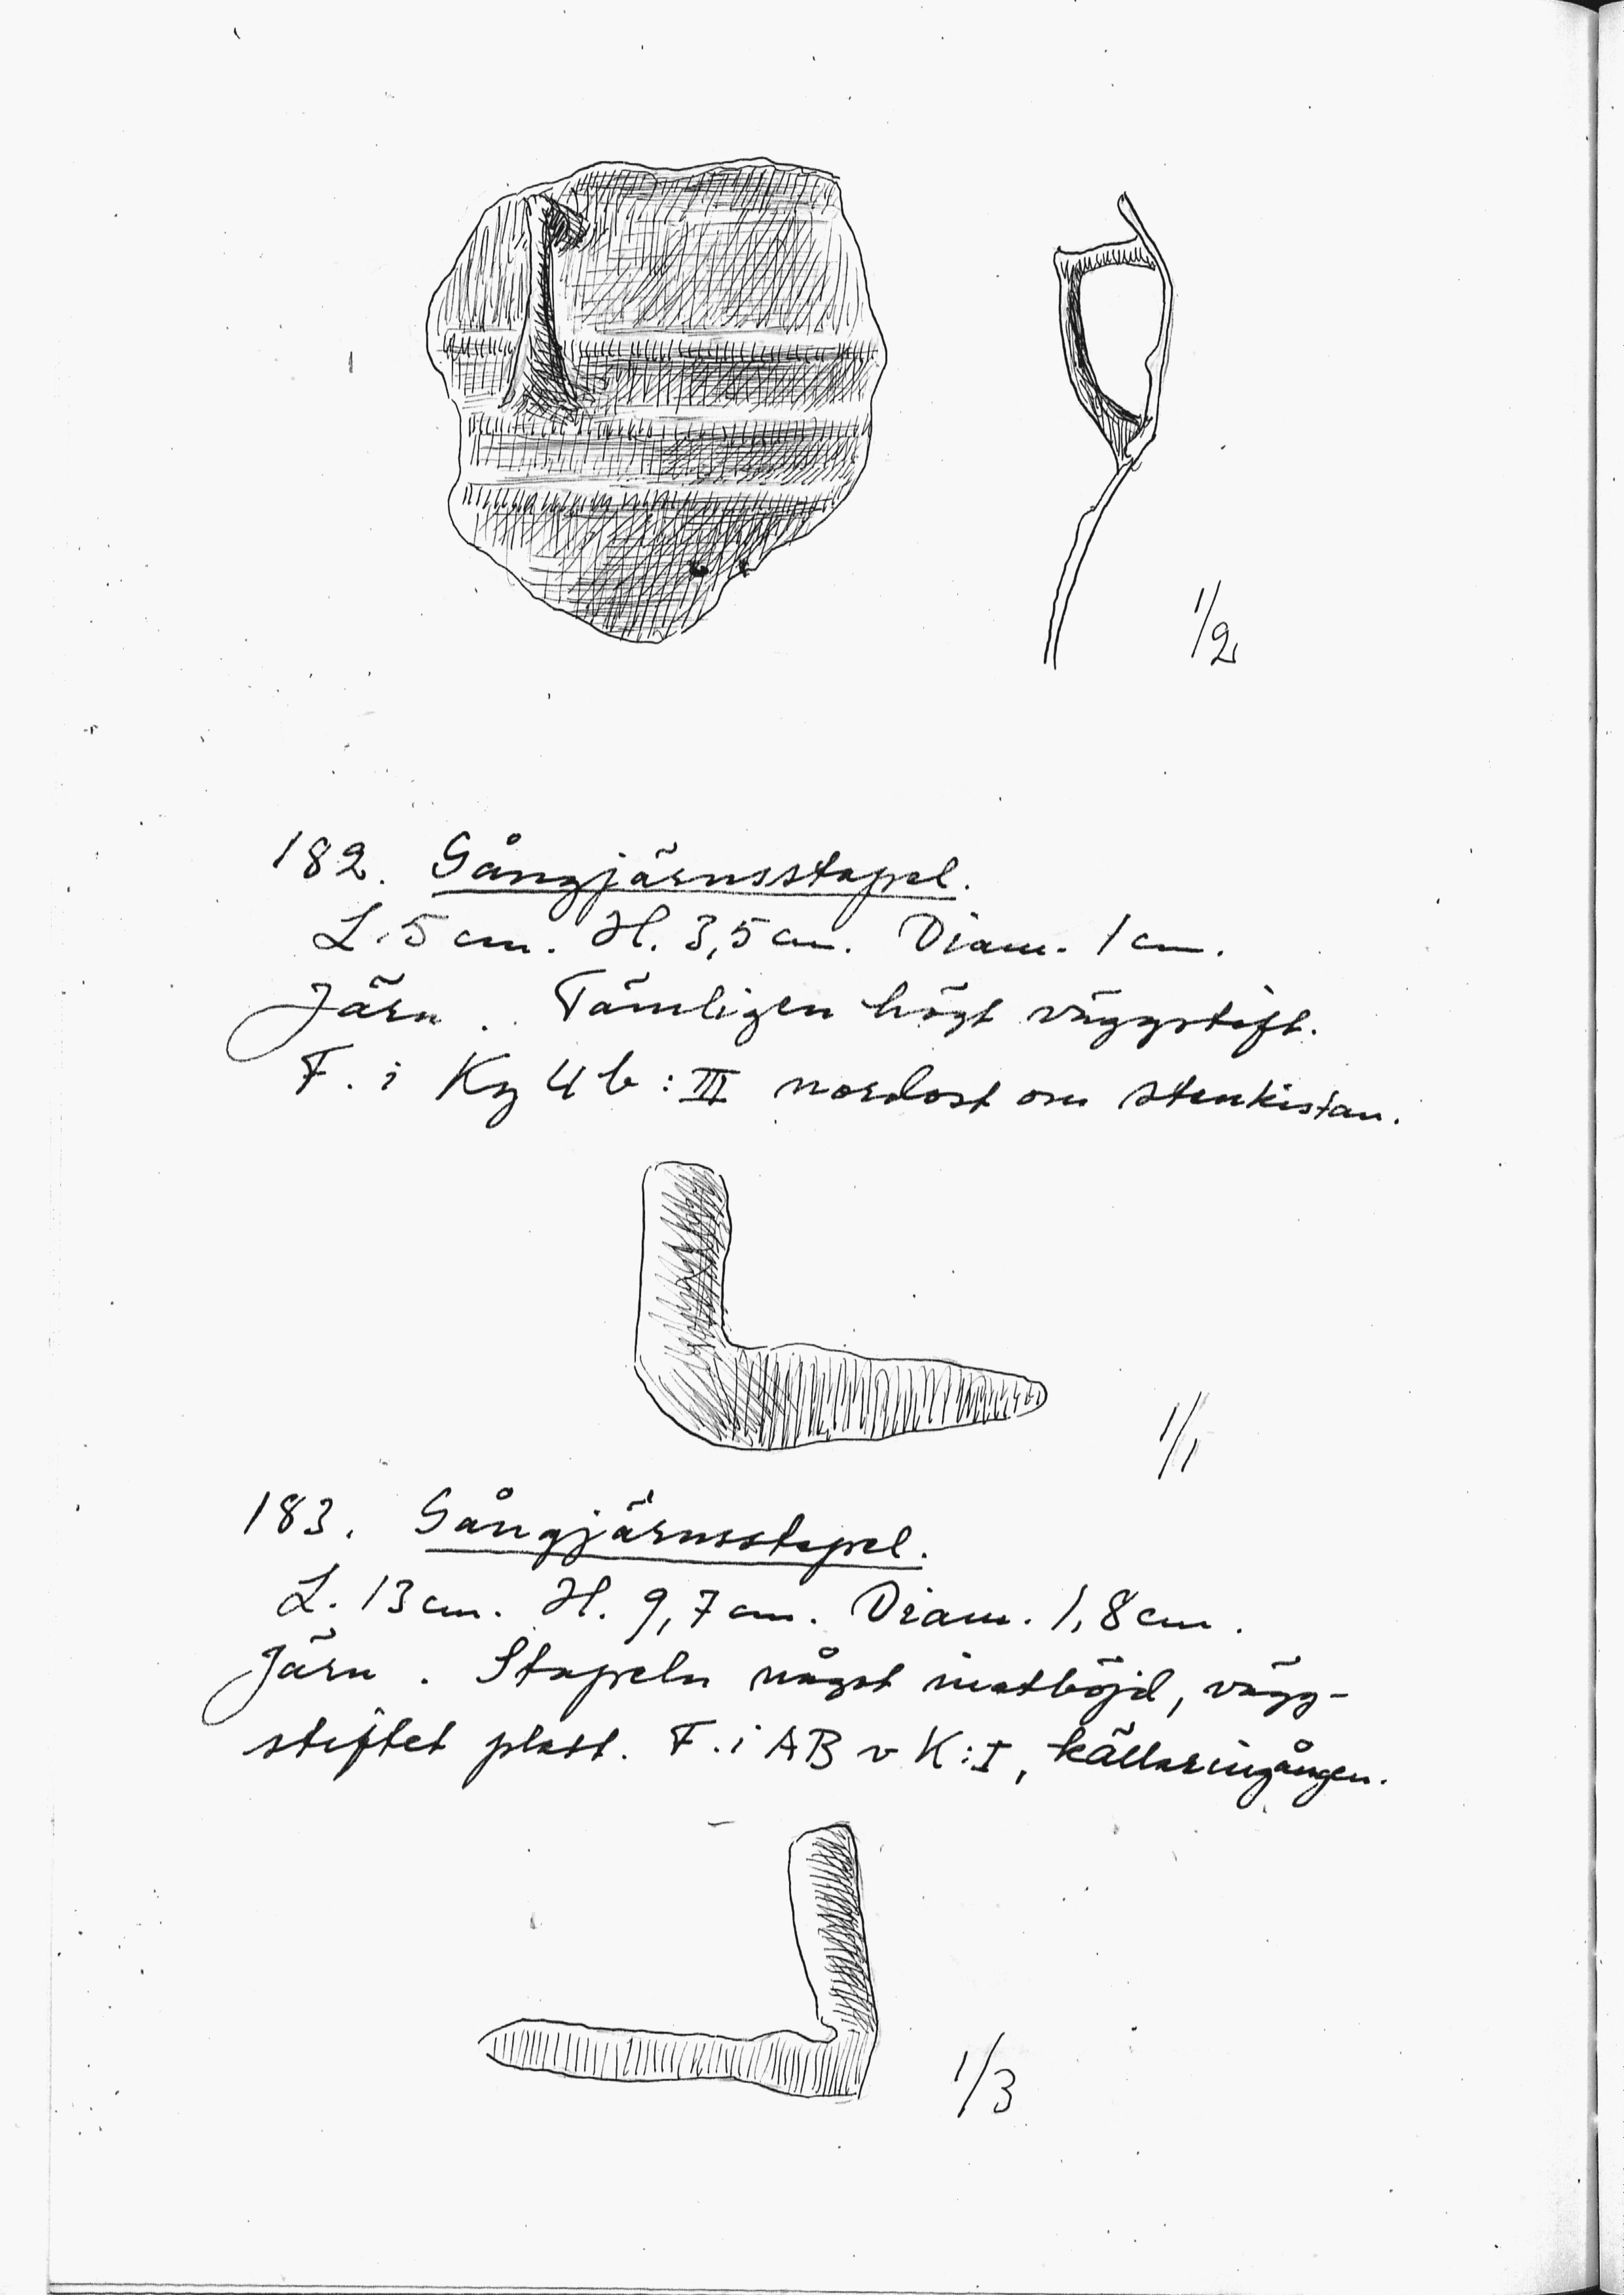 1/2
182. Gångjärnsstapel.
L. 5 cm. H. 3,5 cm. Diam. 1 cm.
Järn. Tämligen högt väggstift.
F. i Kg 4b: III nordost om stenkistan.
1/1
183. Gångjärnsstapel.
L. 13 cm. H. 9,7 cm. Diam. 1,8 cm.
Järn. Stapeln något inåtböjd, vägg-
stiftet platt. F. i AB v K: I, källaringången.
1/3